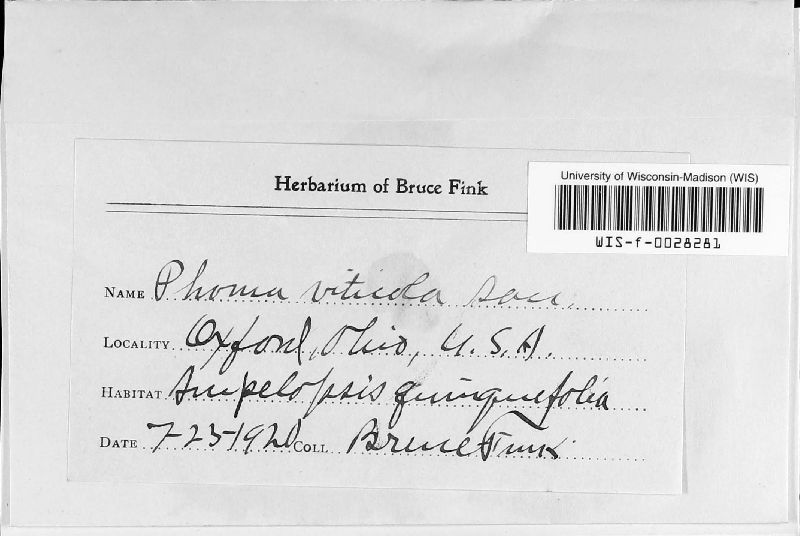 Herbarium of Bruce Fink
University of Wisconsin-Madison (WIS)
WIS-f-0028281
NAME Phoma viticola Sacc.
LOCALITY Oxford, Ohio, U.S.A.
HABITAT Ampelopsis quinquefolia
DATE 7-23-1920 COLL Bruce Fink